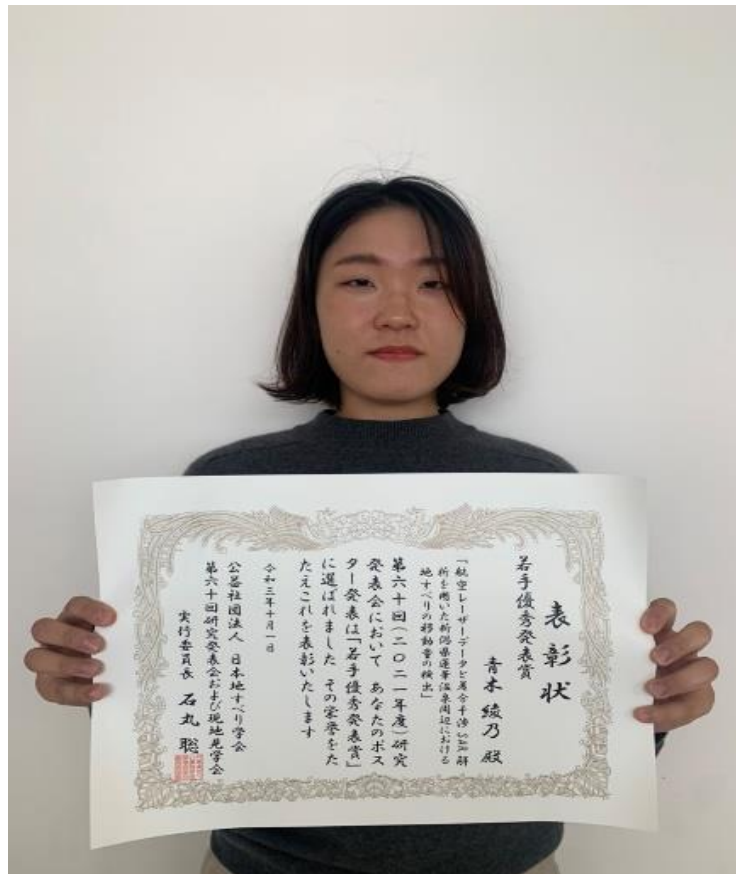 表彰状
若手優秀発表賞
青木 綾乃 殿
「航空レーザーデータと差分干渉SAR解
析を用いた新潟県蓮華温泉周辺における
地すべりの移動量の検出」
第六十回(二〇二一年度)研究
発表会において あなたのポス
ター発表は「若手優秀発表賞」
に選ばれました その栄誉をた
たえこれを表彰いたします
令和三年十月一日
公益社団法人 日本地すべり学会
第六十回研究発表会および現地見学会
実行委員長 石丸 聡